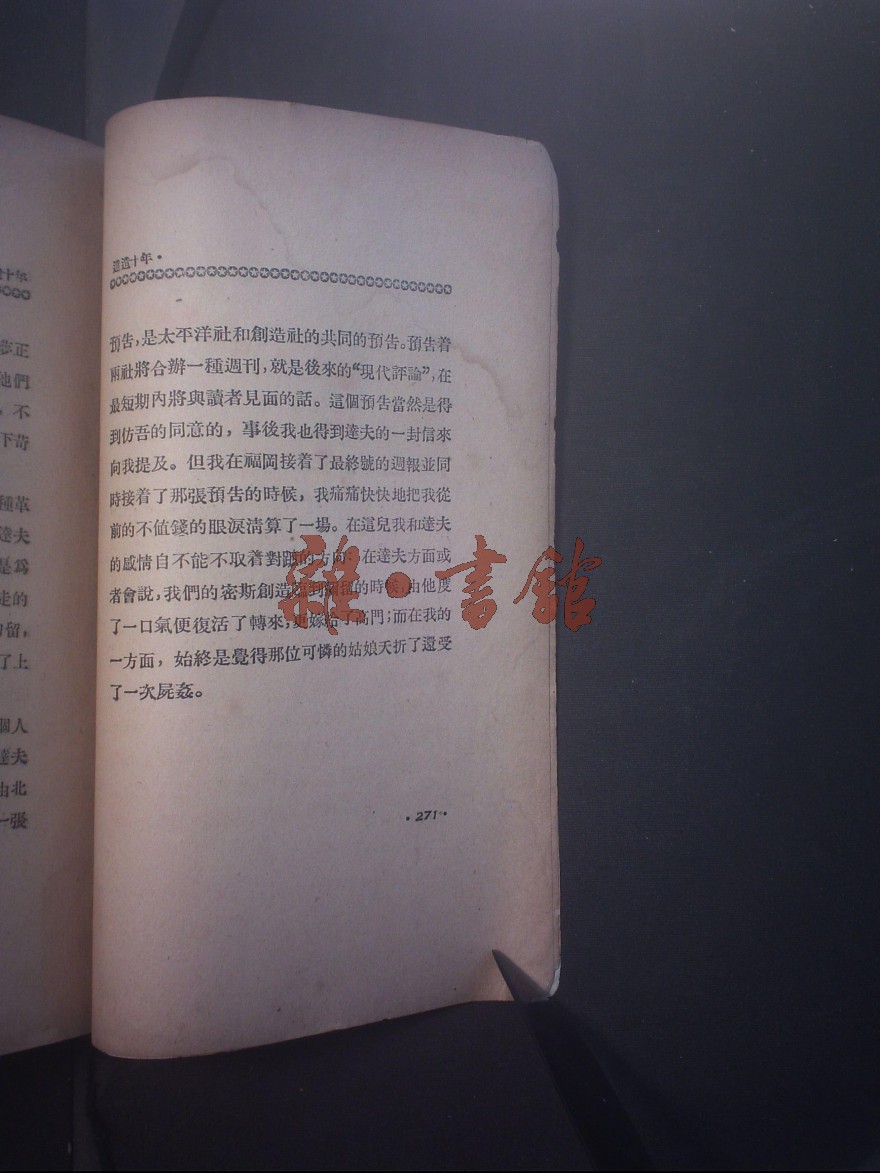 造十年
步正
他們
，不
下苛
種革
達夫
是爲
走的
留，
了上
個人
達夫
由北
一張
創造十年·
預告，是太平洋社和創造社的共同的預告。預告着
兩社將合辦一種週刊，就是後來的“現代評論”，在
最短期內將與讀者見面的話。這個預告當然是得
到仿吾的同意的，事後我也得到達夫的一封信來
向我提及。但我在福岡接着了最終號的週報並同
時接着了那張預告的時候，我痛痛快快地把我從
前的不値錢的眼淚清算了一場。在這兒我和達夫
的感情自不能不取着對蹠的方向：在達夫方面或
者會說，我們的密斯創造臨到彌留的時候，由他度
了一口氣便復活了轉來，更嫁給了高門；而在我的
一方面，始終是覺得那位可憐的姑娘夭折了還受
了一次屍姦。
·271·
雜·書館